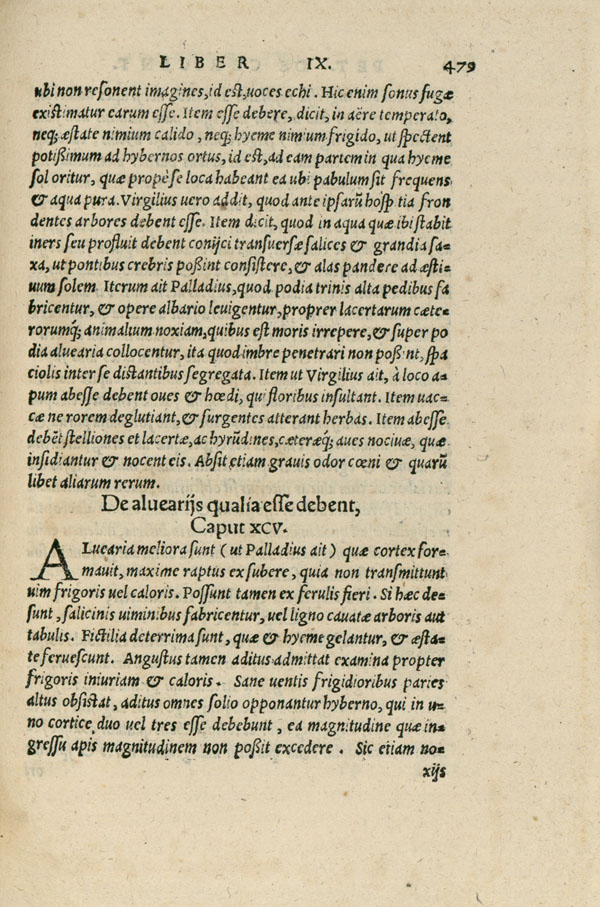 LIBER IX. 479
ubi non resonent imagines, id est, uoces echi. Hic enim sonus fugæ
existimatur earum esse. Item esse debere, dicit, in aëre temperato,
neq; æstate nimium calido, neq; hyeme nimium frigido, ut spectent
potißimum ad hybernos ortus, id est, ad eam partem in qua hyeme
sol oritur, quæ propè se loca habeant ea ubi pabulum sit frequens
& aqua pura. Virgilius uero addit, quod ante ipsarũ hosp tia fron
dentes arbores debent esse. Item dicit, quod in aqua quæ ibi stabit
iners seu profluit debent conijci transuersæ salices & grandia sa=
xa, ut pontibus crebris poßint consistere, & alas pandere ad æsti=
uum solem. Iterum ait Palladius, quod podia trinis alta pedibus fa
bricentur, & opere albario leuigentur, proprer lacertarum cæte=
rorumq; animalium noxiam, quibus est moris irrepere, & super po
dia aluearia collocentur, ita quod imbre penetrari non poßint, spa
ciolis inter se distantibus segregata. Item ut Virgilius ait, à loco a=
pum abesse debent oues & hœdi, qui floribus insultant. Item uac=
cæ ne rorem deglutiant, & surgentes atterant herbas. Item abesse
debẽt stelliones et lacertæ, ac hyrũdines, cæteræq; aues nociuæ, quæ
insidiantur & nocent eis. Absit etiam grauis odor cœni & quarũ
libet aliarum rerum.
De aluearijs qualia esse debent,
Caput XCV.
ALuearia meliora sunt (ut Palladius ait) quæ cortex for=
mauit, maxime raptus ex subere, quia non transmittunt
uim frigoris uel caloris. Possunt tamen ex ferulis fieri. Si hæc de=
sunt, salicinis uiminibus fabricentur, uel ligno cauatæ arboris aut
tabulis. Fictilia deterrima sunt, quæ & hyeme gelantur, & æsta=
te feruescunt. Angustus tamen aditus admittat examina propter
frigoris iniuriam & caloris. Sane uentis frigidioribus paries
altus obsistat, aditus omnes solio opponantur hyberno, qui in u=
no cortice duo uel tres esse debebunt, ea magnitudine quæ in=
gressu apis magnitudinem non poßit excedere. Sic etiam no=
xijs